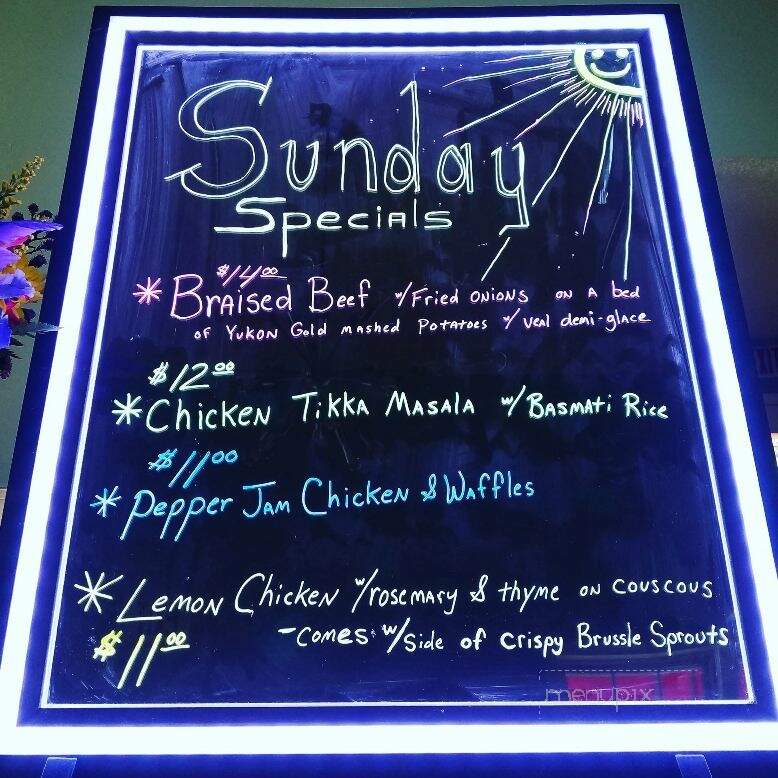 Sunday
Specials
$14.00
* Braised Beef w/ Fried onions on a bed
of Yukon Gold mashed Potatoes w/ veal demi-glace
$12.00
* Chicken Tikka Masala w/ Basmati Rice
$11.00
* Pepper Jam Chicken & Waffles
* Lemon Chicken w/ rosemary & thyme on couscous
$11.00 - comes w/ side of crispy Brussle Sprouts
menupix